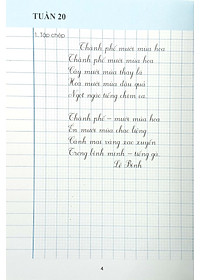 TUẦN 20
1. Tập chép
Thành phố mười mùa hoa
Thành phố mười mùa hoa
Cây mười mùa thay lá
Hoa mười mùa dâu quả
Ngọt ngào tiếng chim ca.
Thành phố - mười mùa hoa
Én mười mùa chao liệng
Cánh mai vàng xao xuyến
Trong bình minh - tiếng gà.
Lê Bính
4